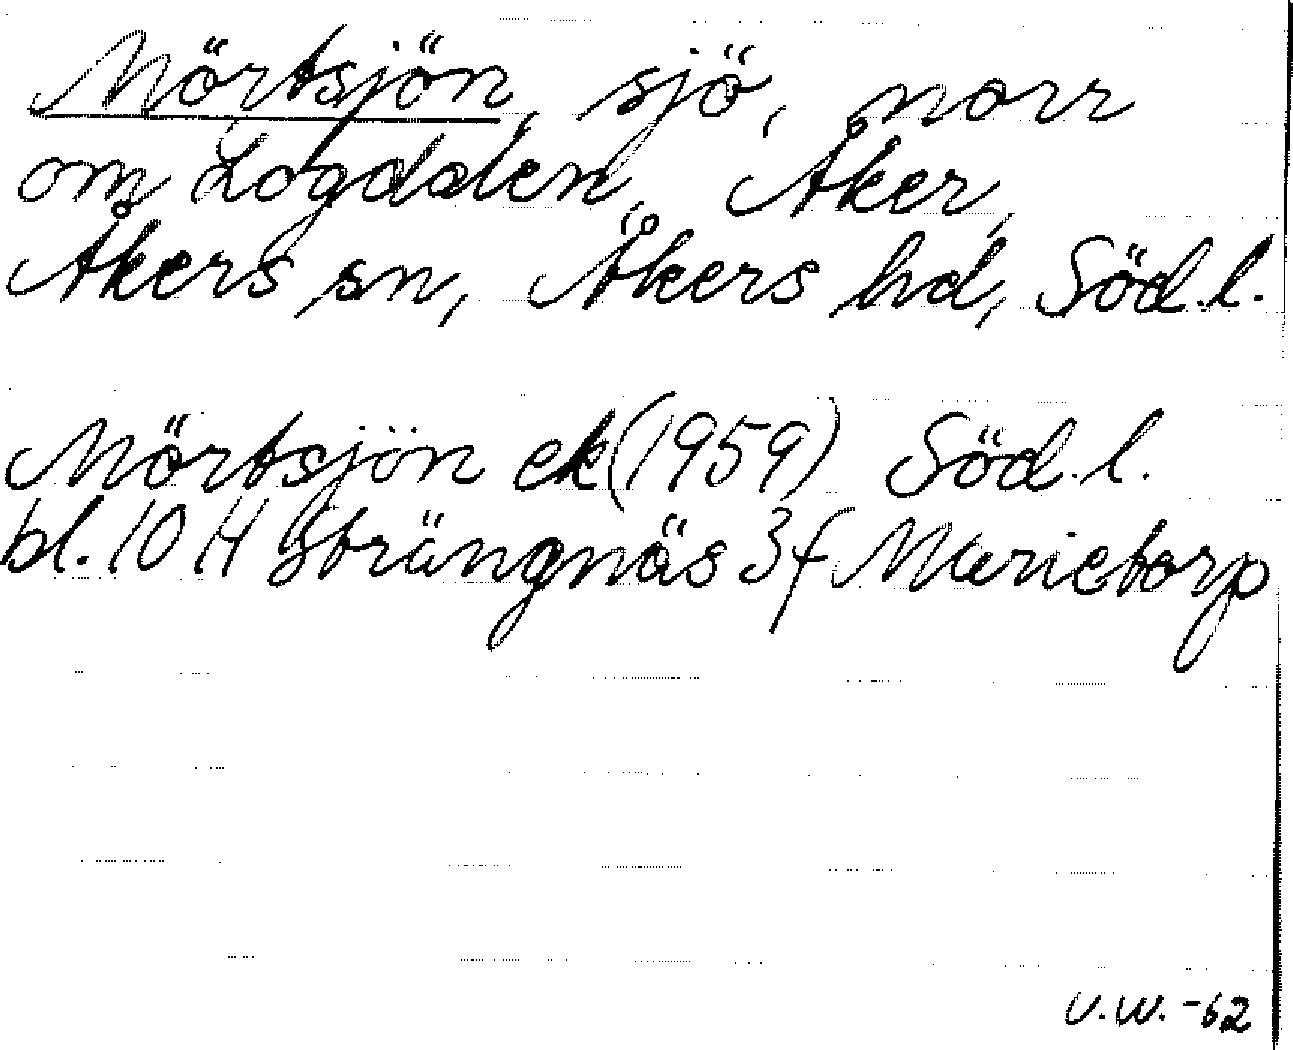 Mörtsjön, sjö, norr
om Logdalen, Åker,
Åkers sn, Åkers hd, Söd.l.
Mörtsjön ek(1959) Söd.l.
bl. 10 H Strängnäs 3f Marietorp
U.W. -62